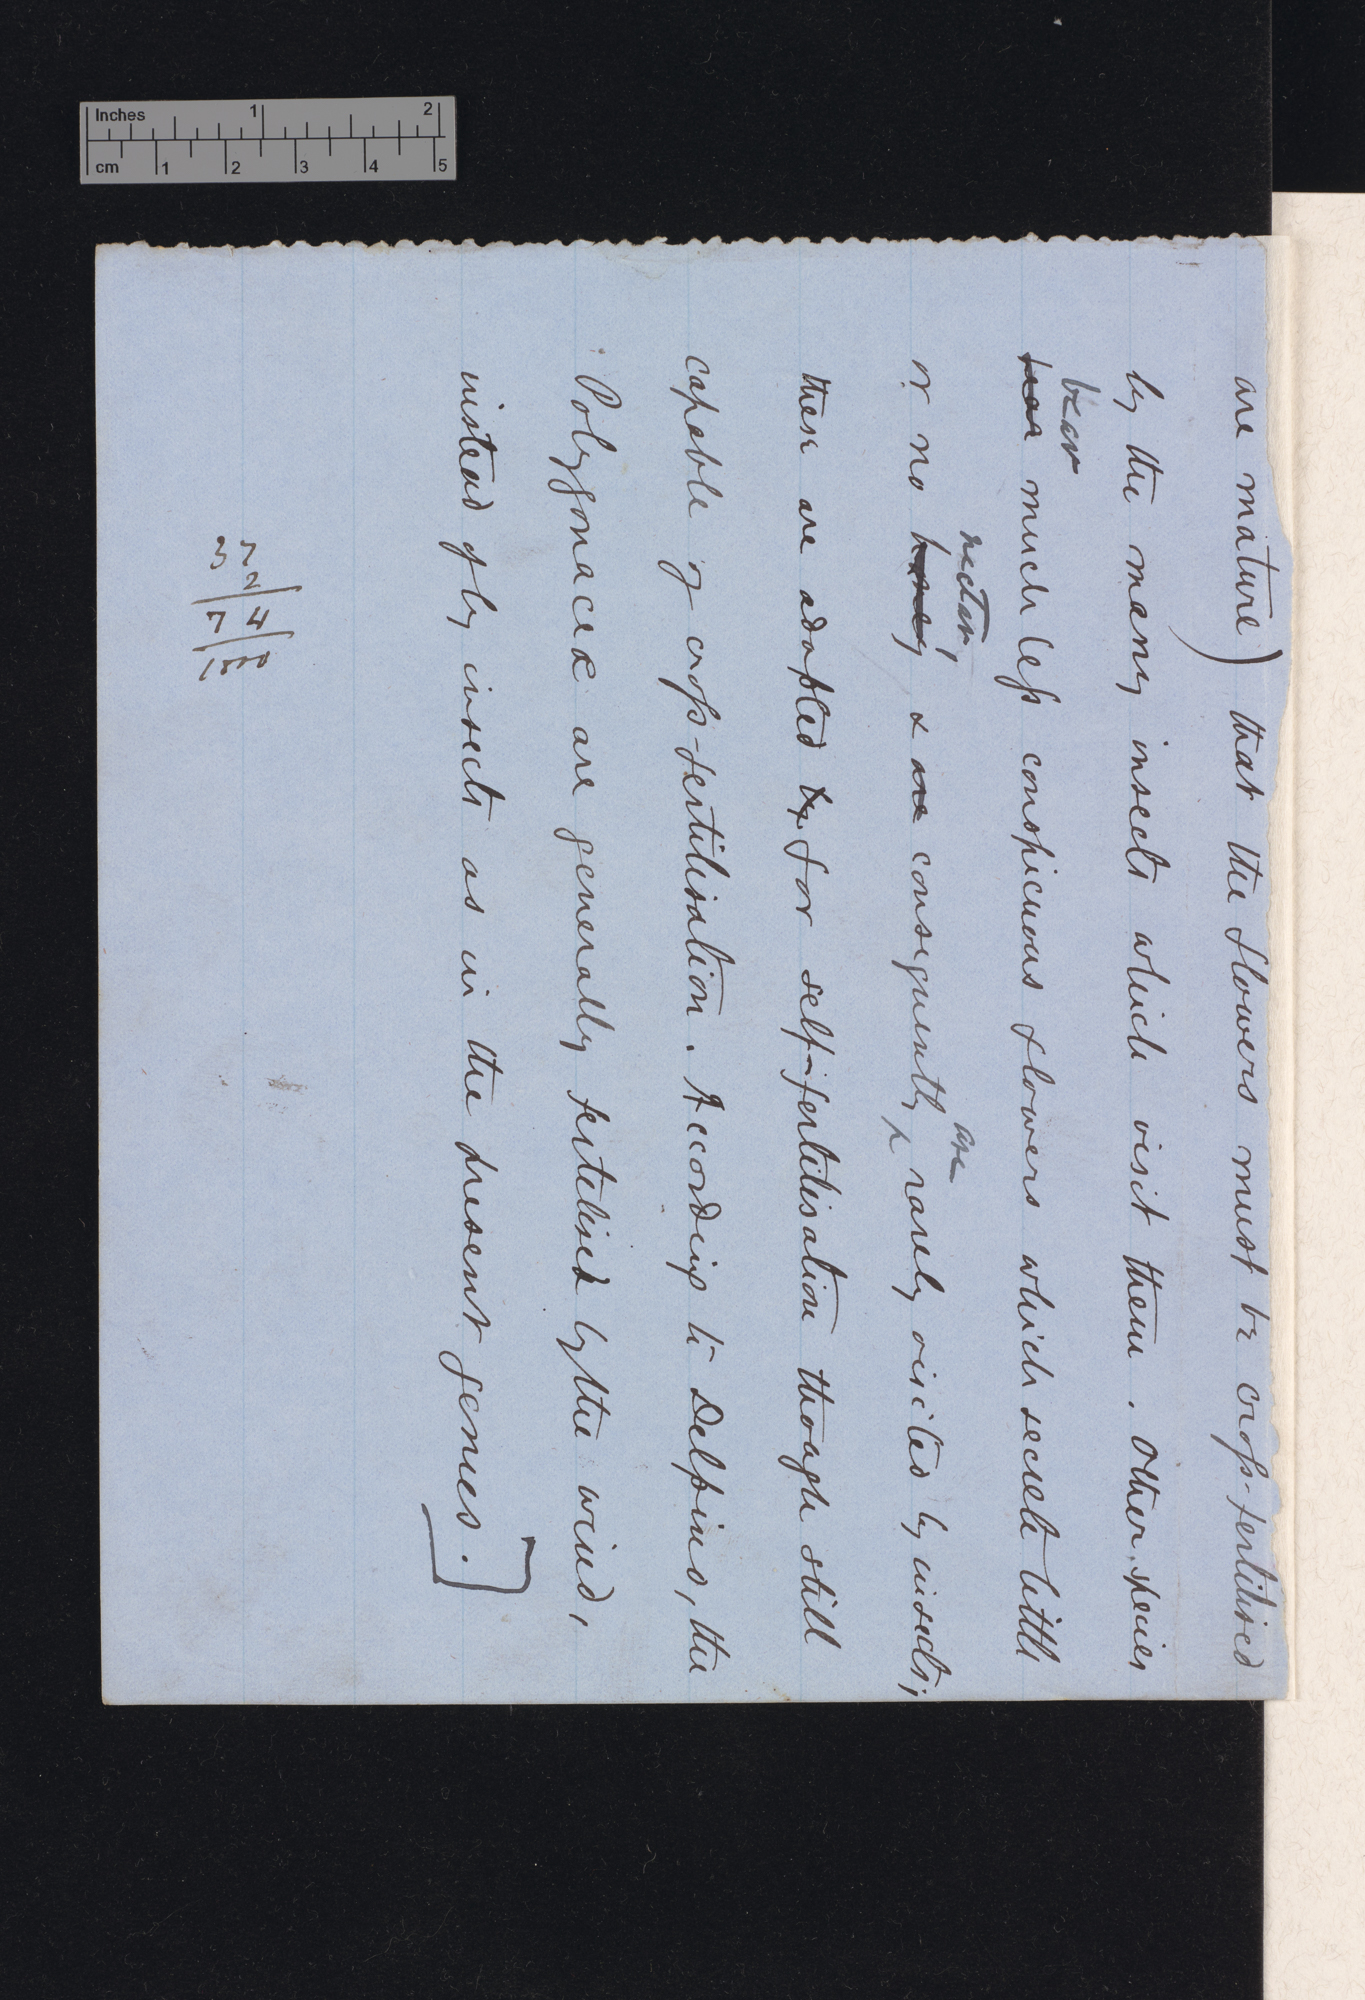 Inches 1 2
cm 1 2 3 4 5
are mature) that the flowers must be cross-fertilised
by the many insects which visit them. Other species
bear
much less conspicuous flowers which secrete little
nectar, are
or no honey & are consequently rarely visited by insects;
these are adapted for self-fertilisation though still
capable of cross-fertilisation. According to Delpino, the
Polygonaceæ are generally fertilised by the wind,
instead of by insects as in the present genus.]
37
2
74